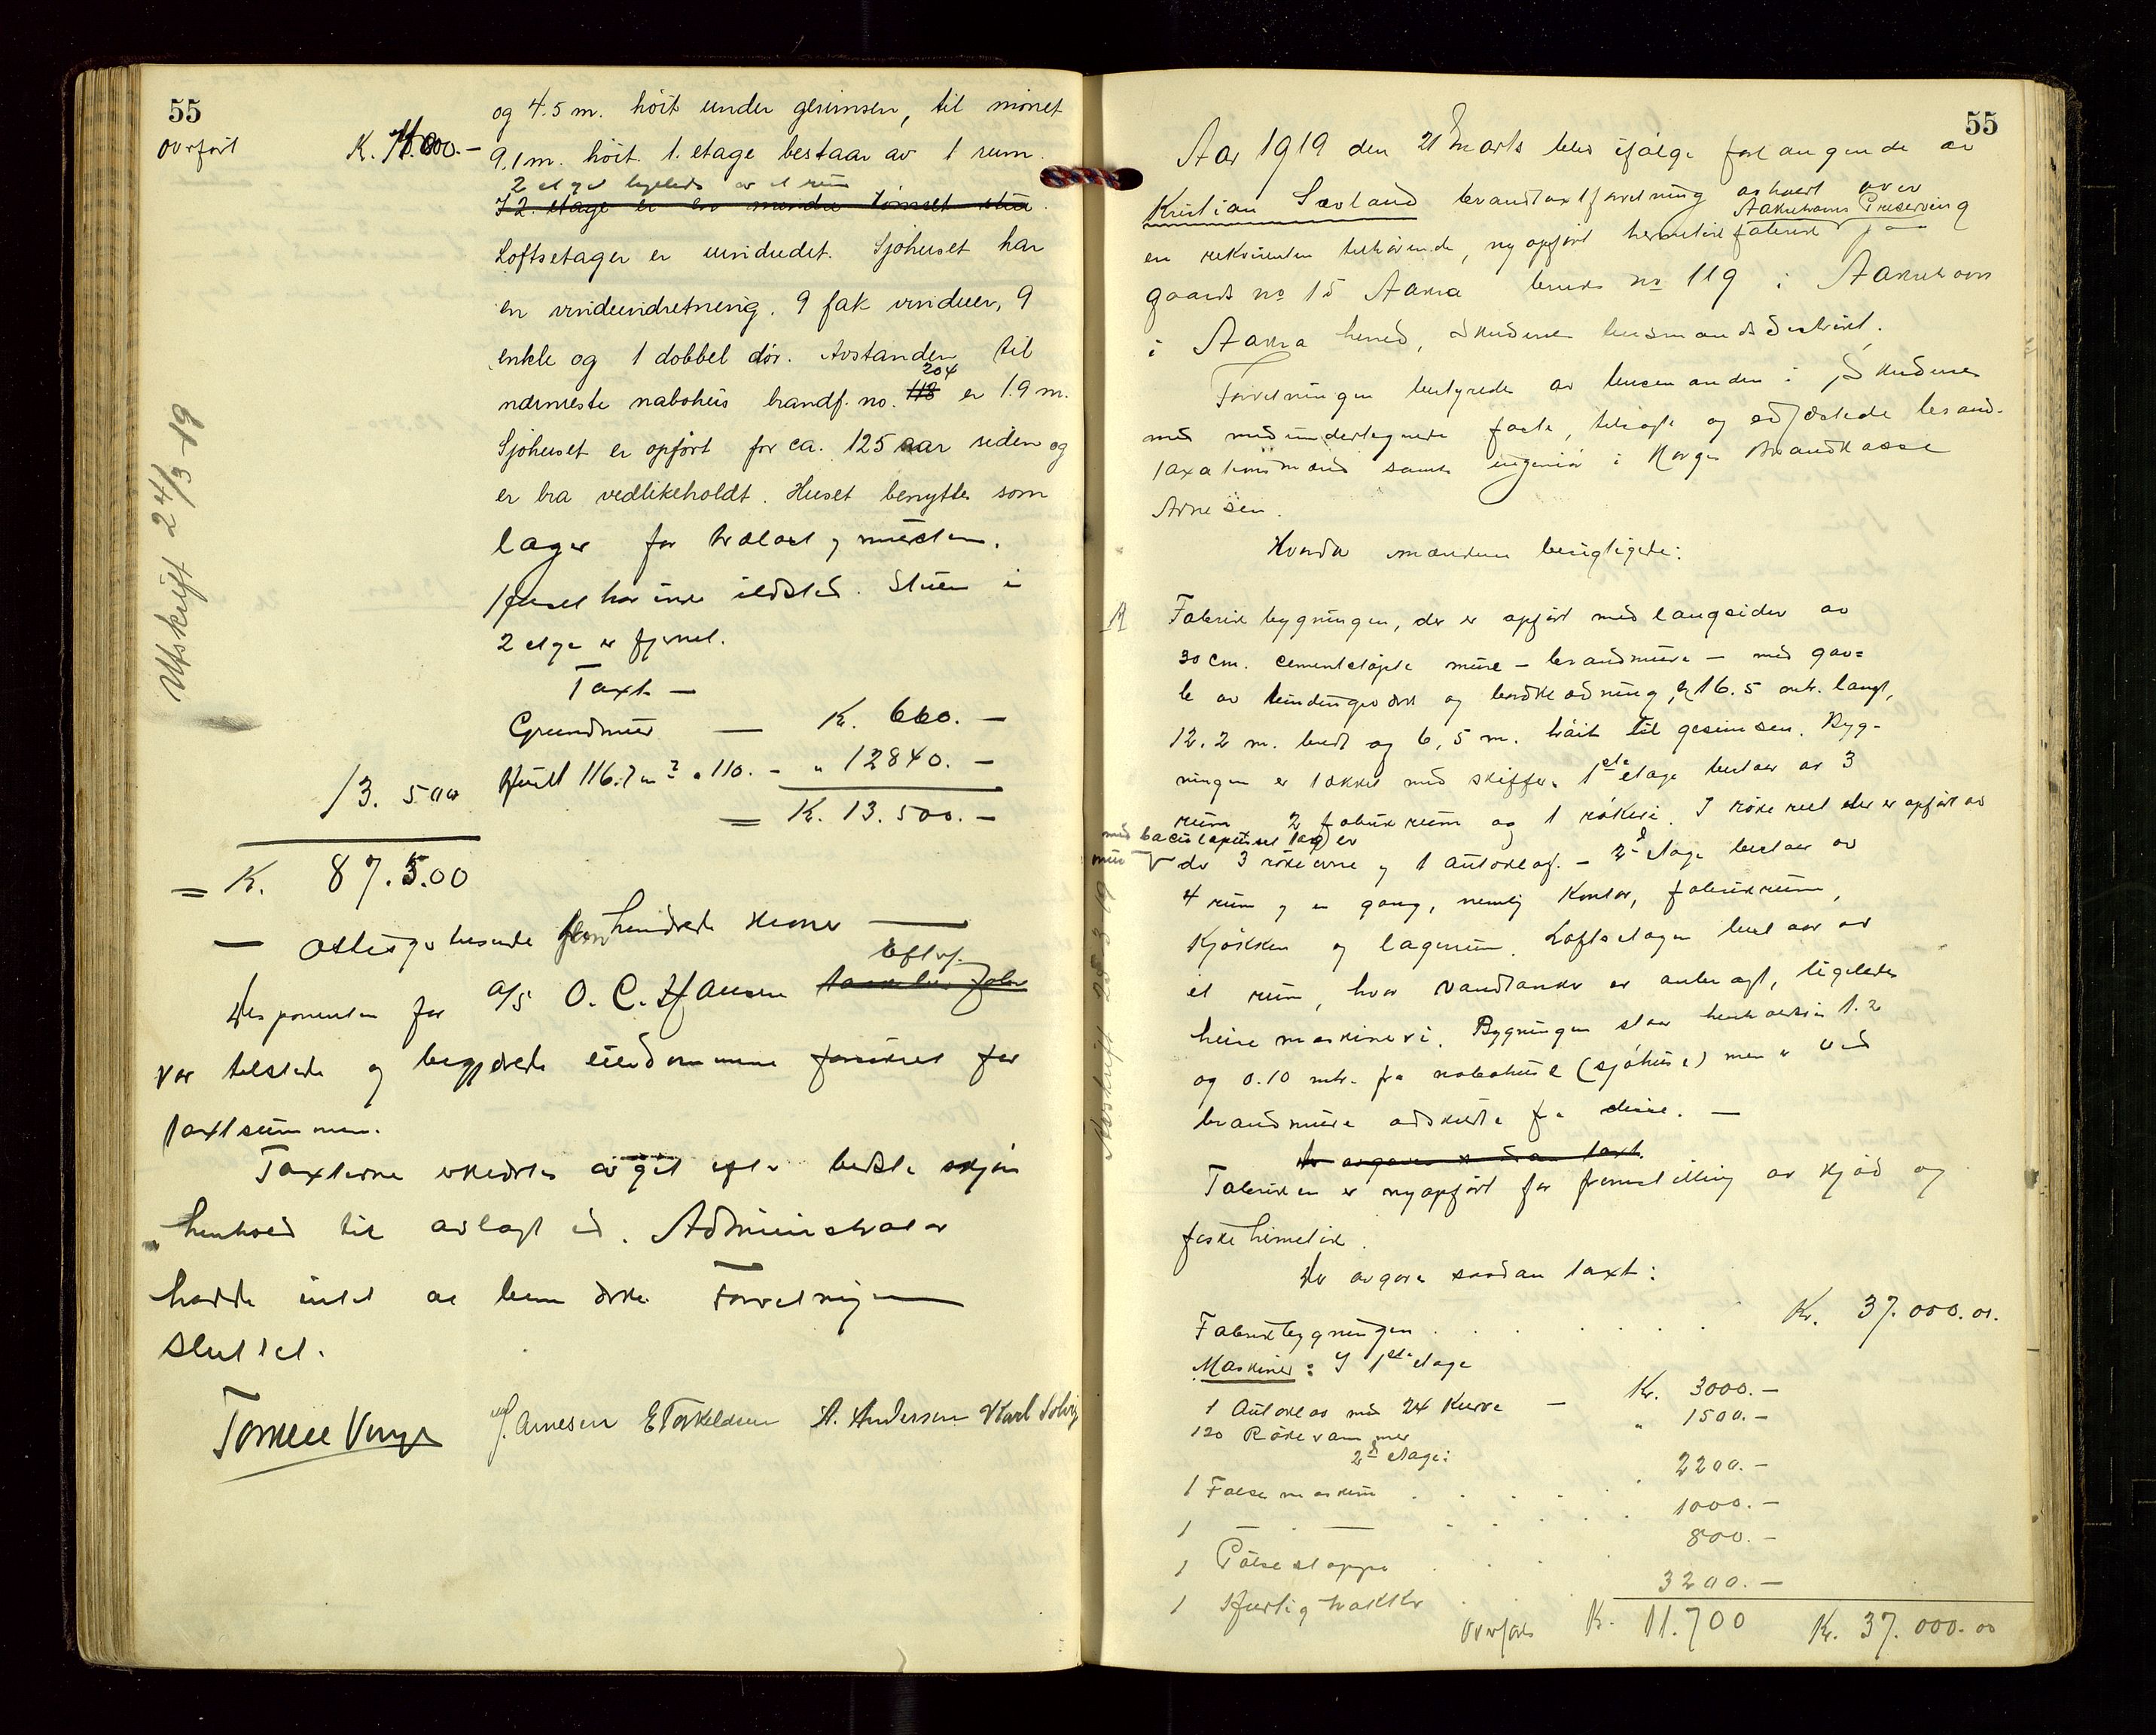 55
Overført K. 74.000.–
og 4.5 m. höit under gesimsen, til mönet
9,1 m. höit. 1. etage bestaar av 1 rum.
2 etge ligeleds av et rum
I 2. etage er en mindre tömret stue.
Loftsetager er uindredet. Sjöhuset har
en vindeindretning. 9 fak vinduer, 9
enkle og 1 dobbel dör. Avstanden til
204
nærmeste nabohus brandf. no. 118 er 1.9 m.
Sjöhuset er opfört for ca. 125 aar siden og
er bra vedlikeholdt. Huset benyttes som
lager for trælast og mursten.
Huset har intet ildsted. Stuen i
2 etge er fjernet.
Taxt –
Grundmur — K. 660. –
Huset 116.7 m² a 110. – " 12840. –
13. 500 = K. 13.500. –
= K. 87.500
— ottitisyv tusende fem hundrede kroner —
Eftf.
Disponenten for A/S O. C. Hansen
var tilstede og begjærede eiendommene forsikret for
taxtsummen.
Taxterne erklærtes avgit efter bedste skjön
i henhold til avlagt ed. Administrator
hadde intet at bemærke Forretningen
sluttet.
Torkell Vinje J. Arnesen E Torkeldsen A. Andersen Karl Solvig
Utskrift 24/3 – 19
55
Aar 1919 den 21 marts blev ifölge forlangende av
Kristian Sevland brandtaxtforretning avholdt over
Aakrehavns Preserving
en rekvirenten tilhörende, ny opfört hermetikfabrik paa
gaards no 15 Aakra bruks no 119 i Aakrehavn
i Aakra herred, Skudenes lensmandsdistrikt.
Forretningen bestyredes av lensmanden i Skudenes
med medundertegnede faste, tilsagte og edfæstede brand-
taxationsmænd samt ingeniör i Norges Brandkasse
Arnesen.
Hvorda mændene besigtigede:
A Fabrikbygningen, der er opfört med langsider av
30 cm. cementstöpte mure – brandmure – med gav=
le av bindingsverk og bordklædning, er 16.5 mtr. langt,
12.2 m. bredt og 6,5 m. höit til gesimsen. Byg-
ningen er tækket med skiffer. 1ste etage bestaar av 3
rum 2 fabrikrum og 1 rökeri. I rökeriet der er opfört av
mur
der 3 rökeovne og 1 autoklav. – 2d etage bestaar av
4 rum og en gang, nemlig Kontor, fabrikrum,
kjökken og lagerrum. Loftsetagen bestaar av
et rum, hvor vandtanker er anbragt, ligeledes
heisemaskineri. Bygningen staar henholdsvis 1.2
og 0.10 mtr. fra nabohuse (sjöhuse) men er ved
brandmure adskildte fra disse. —
Der avgaves saadan taxt.
Fabriken er nyopfört for fremstilling av kjöd og
fiskehermetik.
Der avgaves saadan taxt:
Fabrikbygningen . . . . . . Kr. 37.000.00.
Maskiner: I 1ste etage
1 Autoklav med 24 Kurve — Kr. 3000. –
120 Rökerammer " 1500. –
2d etage:
1 Falsemaskin . . . . . 2200. –
1 — . — . . . . 1000. –
1 Pölsestopper . . . 800. –
1 Hurtighakker . . 3200. –
Overföres K. 11.700 Kr. 37.000.00
Utskrift 25-3-19